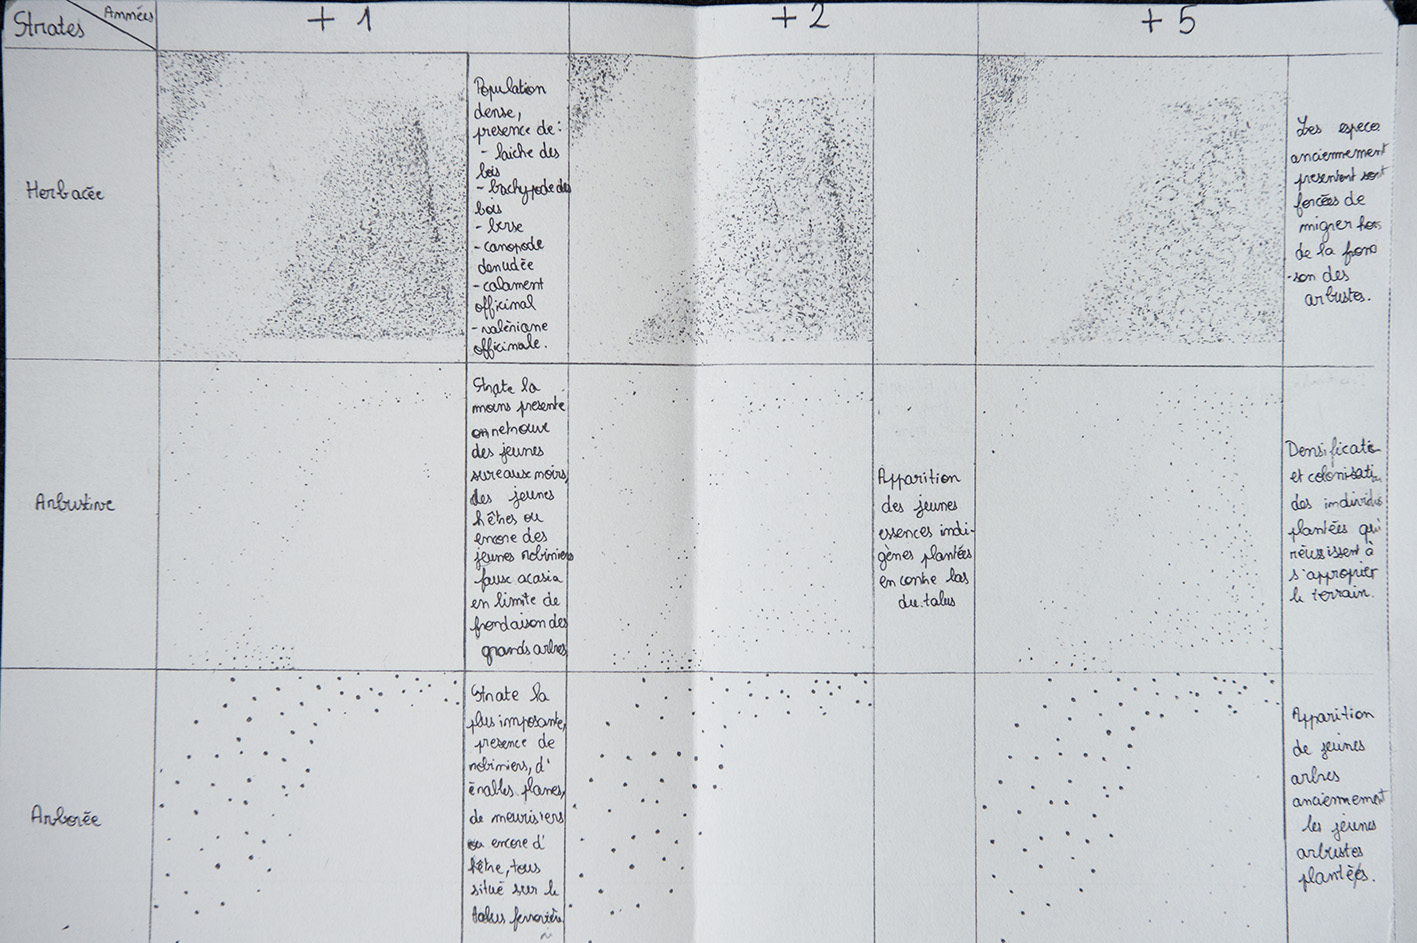 Strates
Années
+ 1
+ 2
+ 5
Herbacée
Population
dense,
présence de :
- laîche des
bois
- brachypode des
bois
- berse
- canopode
denudée
- calament
officinal
- valériane
officinale.
Les espèces
anciennement
présentent sont
forcées de
migrer hors
de la fron
-son des
arbustes.
Arbustive
Strate la
moins présente
on retrouve
des jeunes
sureaux noirs,
des jeunes
hêtres ou
encore des
jeunes robiniers
faux acasia
en limite de
frondaison des
grands arbres
Apparition
des jeunes
essences indi-
gènes plantées
en contre bas
du talus
Densificatio
et colonisati
des individus
plantées qui
réussissent à
s'approprier
le terrain.
Arborée
Strate la
plus imposante,
présence de
robiniers, d'
érables planes,
de meurisiers
ou encore d'
hêtre, tous
situé sur le
talus ferrovière
Apparition
de jeunes
arbres
anciennement
les jeunes
arbustes
plantées.